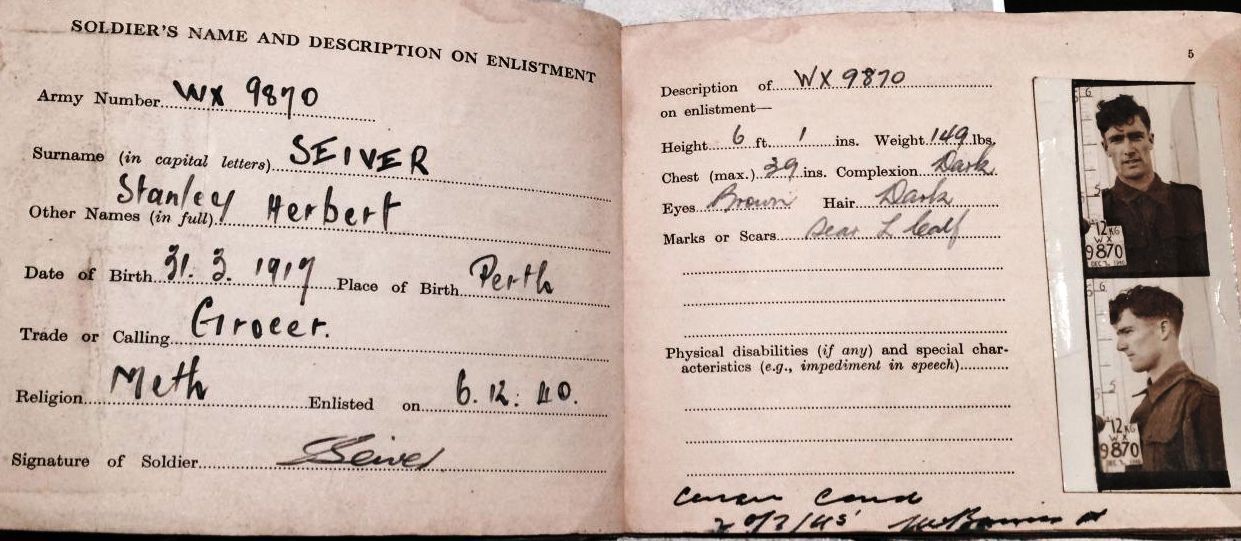 SOLDIER'S NAME AND DESCRIPTION ON ENLISTMENT
Army Number WX 9870
Surname (in capital letters) SEIVER
Other Names (in full) Stanley Herbert
Date of Birth 31. 3. 1917 Place of Birth Perth
Trade or Calling Grocer.
Religion Meth Enlisted on 6. 12. 40.
Signature of Soldier Seiver
5
Description of WX 9870
on enlistment—
Height 6 ft. 1 ins. Weight 149 lbs.
Chest (max.) 39 ins. Complexion Dark
Eyes Brown Hair Dark
Marks or Scars Scar L Calf
Physical disabilities (if any) and special char-
acteristics (e.g., impediment in speech)
6
5
12 KG
WX
9870
6
5
12 KG
WX
9870